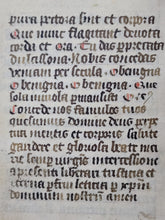 pura pectora sint et corpora
Que nunc flagitant devota
corda et ora Tu das per precata
dulcissona Nobis concedas
veniam per secula O benigna
O benigna O benigna Que
sola inviolata permansisti
Concede nos famulos tuos
quesumus domine deus perpe
tua mentis et corporis salute
gaudere et gloriosa beate ma
rie semper virginis intercessione
a presenti liberari tristicia et
eterna perfrui leticia per xpm
dominum nostrum amen